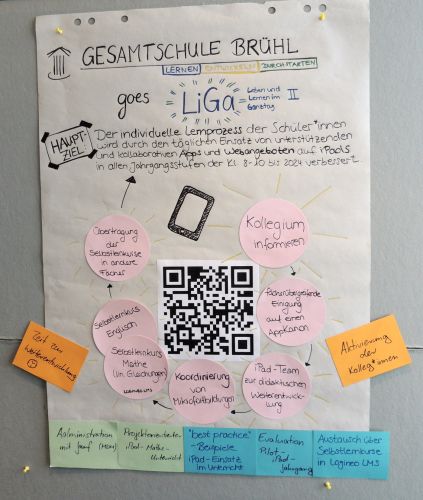 GESAMTSCHULE BRÜHL
LERNEN ENTWICKELN DURCHSTARTEN
goes LiGa Leben und
Lernen im
Ganztag II
HAUPT-
ZIEL
Der individuelle Lernprozess der Schüler*innen
wird durch den täglichen Einsatz von unterstützenden
und kollaborativen Apps und Webangeboten auf iPads
in allen Jahrgangsstufen der Kl. 8-10 bis 2024 verbessert.
Kollegium
informieren
Fächerübergreifende
Einigung
auf einen
AppKanon
iPad-Team
zur didaktischen
Weiterentwick-
lung
Koordinierung
von
Mikrofortbildungen
Selbstlernkurs
Mathe
(lin. Gleichungen)
Selbstlernkurs
Englisch
Übertragung
der
Selbstlernkurse
in andere
Fächer
Zeit zur
Weiterentwicklung
Aktivierung
der
Kolleg*innen
Administration
mit Jamf (MDM)
Projektmitarbeit
iPad-Mathe-
Unterricht
"best practice"
-Beispiele
iPad-Einsatz
im Unterricht
Evaluation
Pilot-
iPad-
Jahrgang
Austausch über
Selbstlernkurse
in Logineo LMS